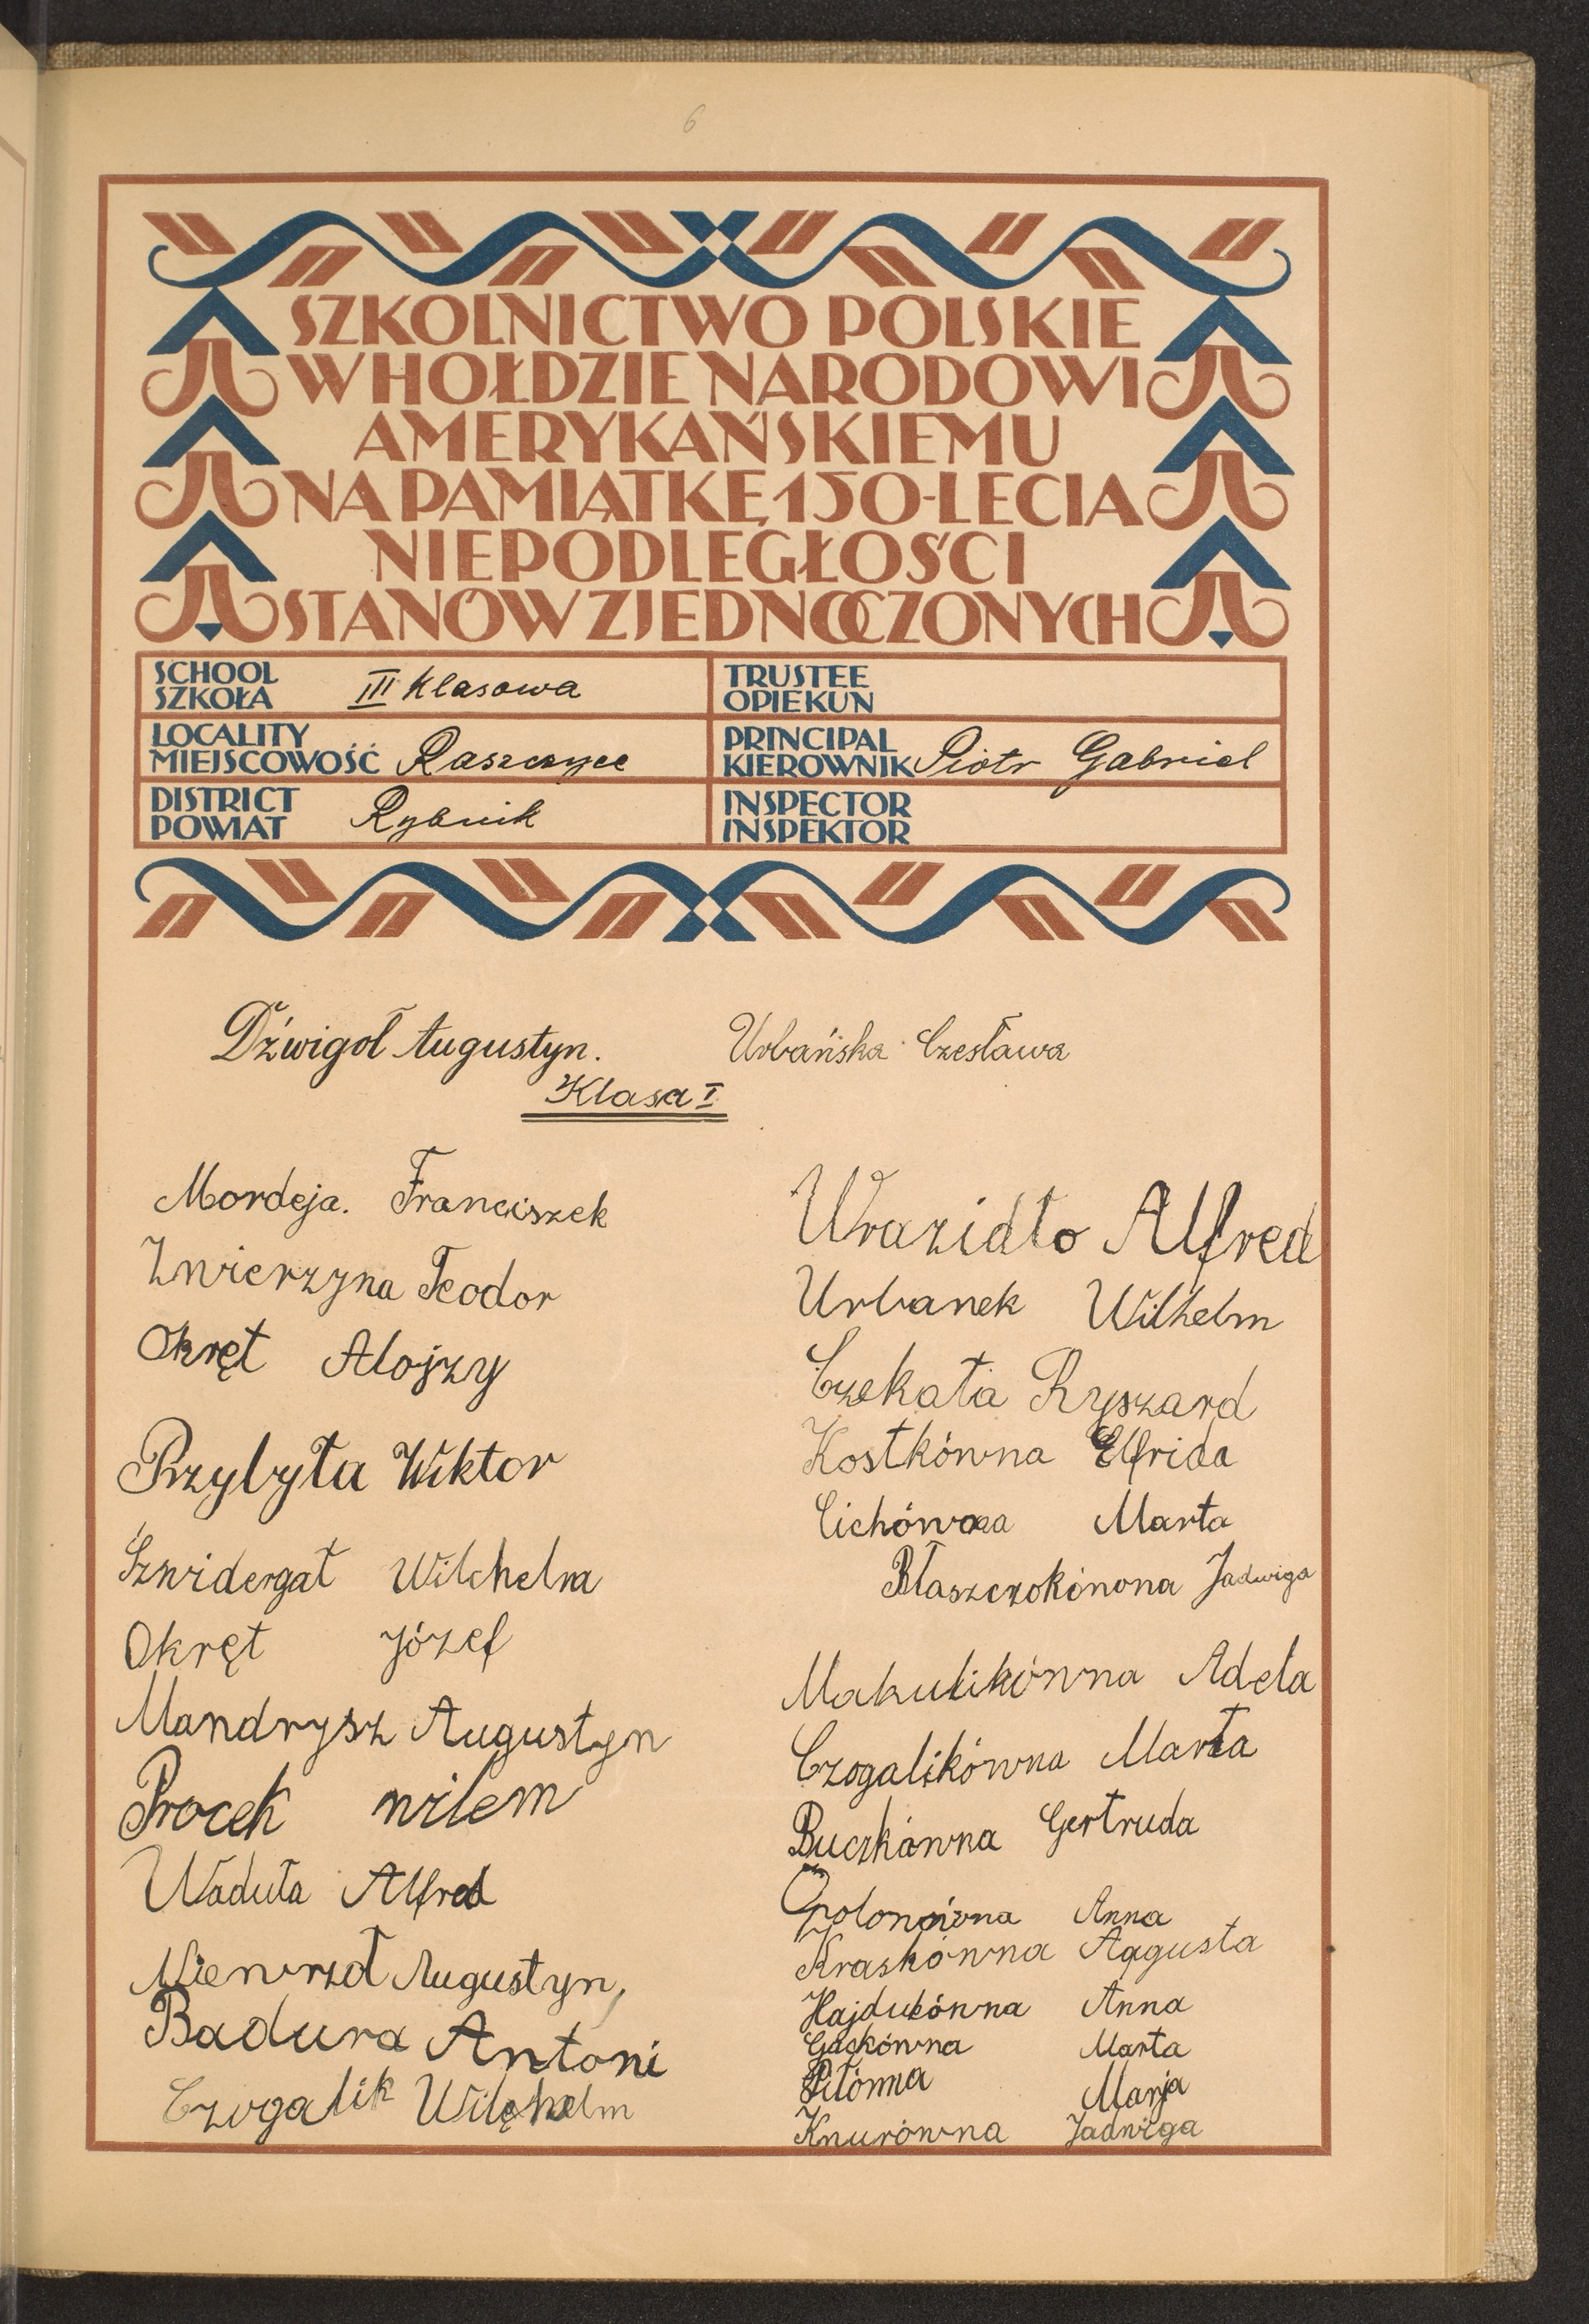 6
SZKOLNICTWO POLSKIE
W HOŁDZIE NARODOWI
AMERYKAŃSKIEMU
NA PAMIĄTKĘ 150-LECIA
NIEPODLEGŁOŚCI
STANÓW ZJEDNOCZONYCH
SCHOOL
SZKOŁA III Klasowa
TRUSTEE
OPIEKUN
LOCALITY
MIEJSCOWOŚĆ Raszczyce
PRINCIPAL
KIEROWNIK Piotr Gabriel
DISTRICT
POWIAT Rybnik
INSPECTOR
INSPEKTOR
Dźwigoł Augustyn. Urbańska Czesława
Klasa I
Mordeja. Franciszek
Zwierzyna Teodor
Okręt Alojzy
Przybyła Wiktor
Szwidergał Wilchelm
Okręt Józef
Mandrysz Augustyn
Procek wilem
Waduła Alfred
Niewrzoł Augustyn,
Badura Antoni
Czogalik Wilchelm
Wrazidło Alfred
Urbanek Wilhelm
Czekała Ryszard
Kostkówna Elfrida
Cichówna Marta
Błaszczokówna Jadwiga
Makulikówna Adela
Czogalikówna Marta
Buczkówna Gertruda
Opolonówna Anna
Kraskówna Augusta
Hajdukówna Anna
Gackówna Marta
Piłówna Marja
Knurówna Jadwiga